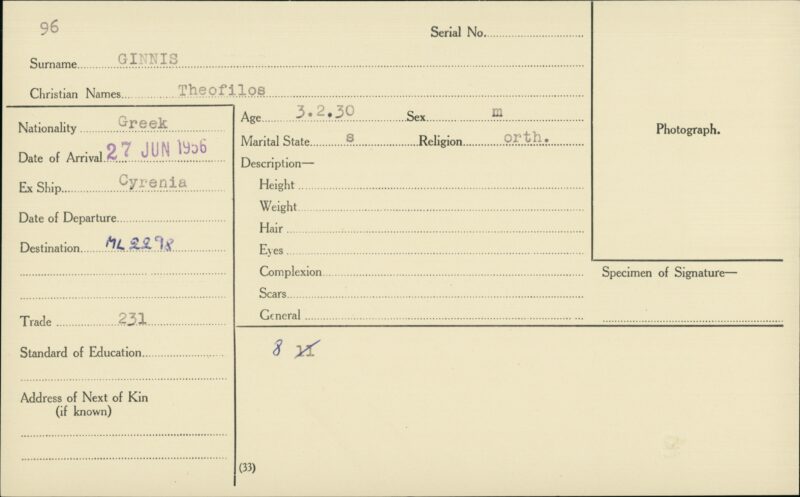 96
Serial No.
Surname GINNIS
Christian Names Theofilos
Nationality Greek
Date of Arrival 27 JUN 1956
Ex Ship Cyrenia
Date of Departure
Destination ML 2298
Trade 231
Standard of Education
Address of Next of Kin
(if known)
Age 3.2.30 Sex m
Marital State s Religion orth.
Description—
Height
Weight
Hair
Eyes
Complexion
Scars
General
8 11
(33)
Photograph.
Specimen of Signature—